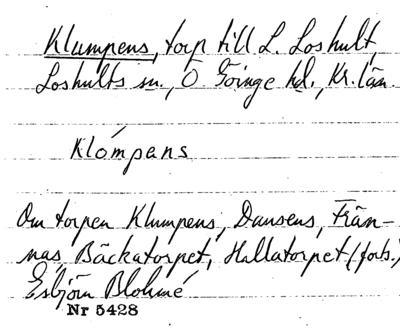 Klumpens, torp till L. Loshult,
Loshults sn., Ö. Göinge hd., Kr. län.
Klómpans
Om torpen Klumpens, Dansens, Frän-
nas Bäckatorpet, Hallatorpet (forts.)
Esbjörn Blohmé
Nr 5428